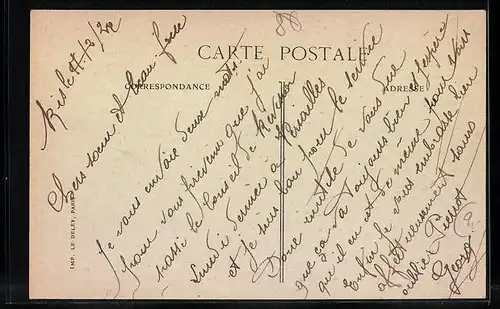 CARTE POSTALE
CORRESPONDANCE
ADRESSE
Chers soeur et beau-frère
Je vous envoie deux mots
pour vous prévenir que j'ai
passé le Conseil de Révision
Lundi dernier à Versailles
et je suis bon pour le service
Donc inutile de vous dire
que ça va toujours bien et j'espère
qu'il en est de même pour vous
Enfin je vous embrasse bien
affectueusement sans
oublier Pierrot
Georges
IMP. LE DELEY, PARIS